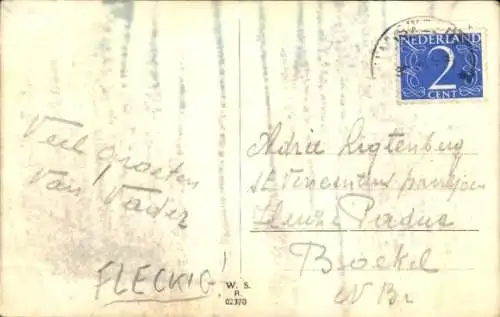 NEDERLAND
2
CENT
Veel groeten
Van Vader
FLECKIG!
W. S.
R.
02370
Adrie Ligtenberg
St Vincentius
Padua
Boekel
N Br